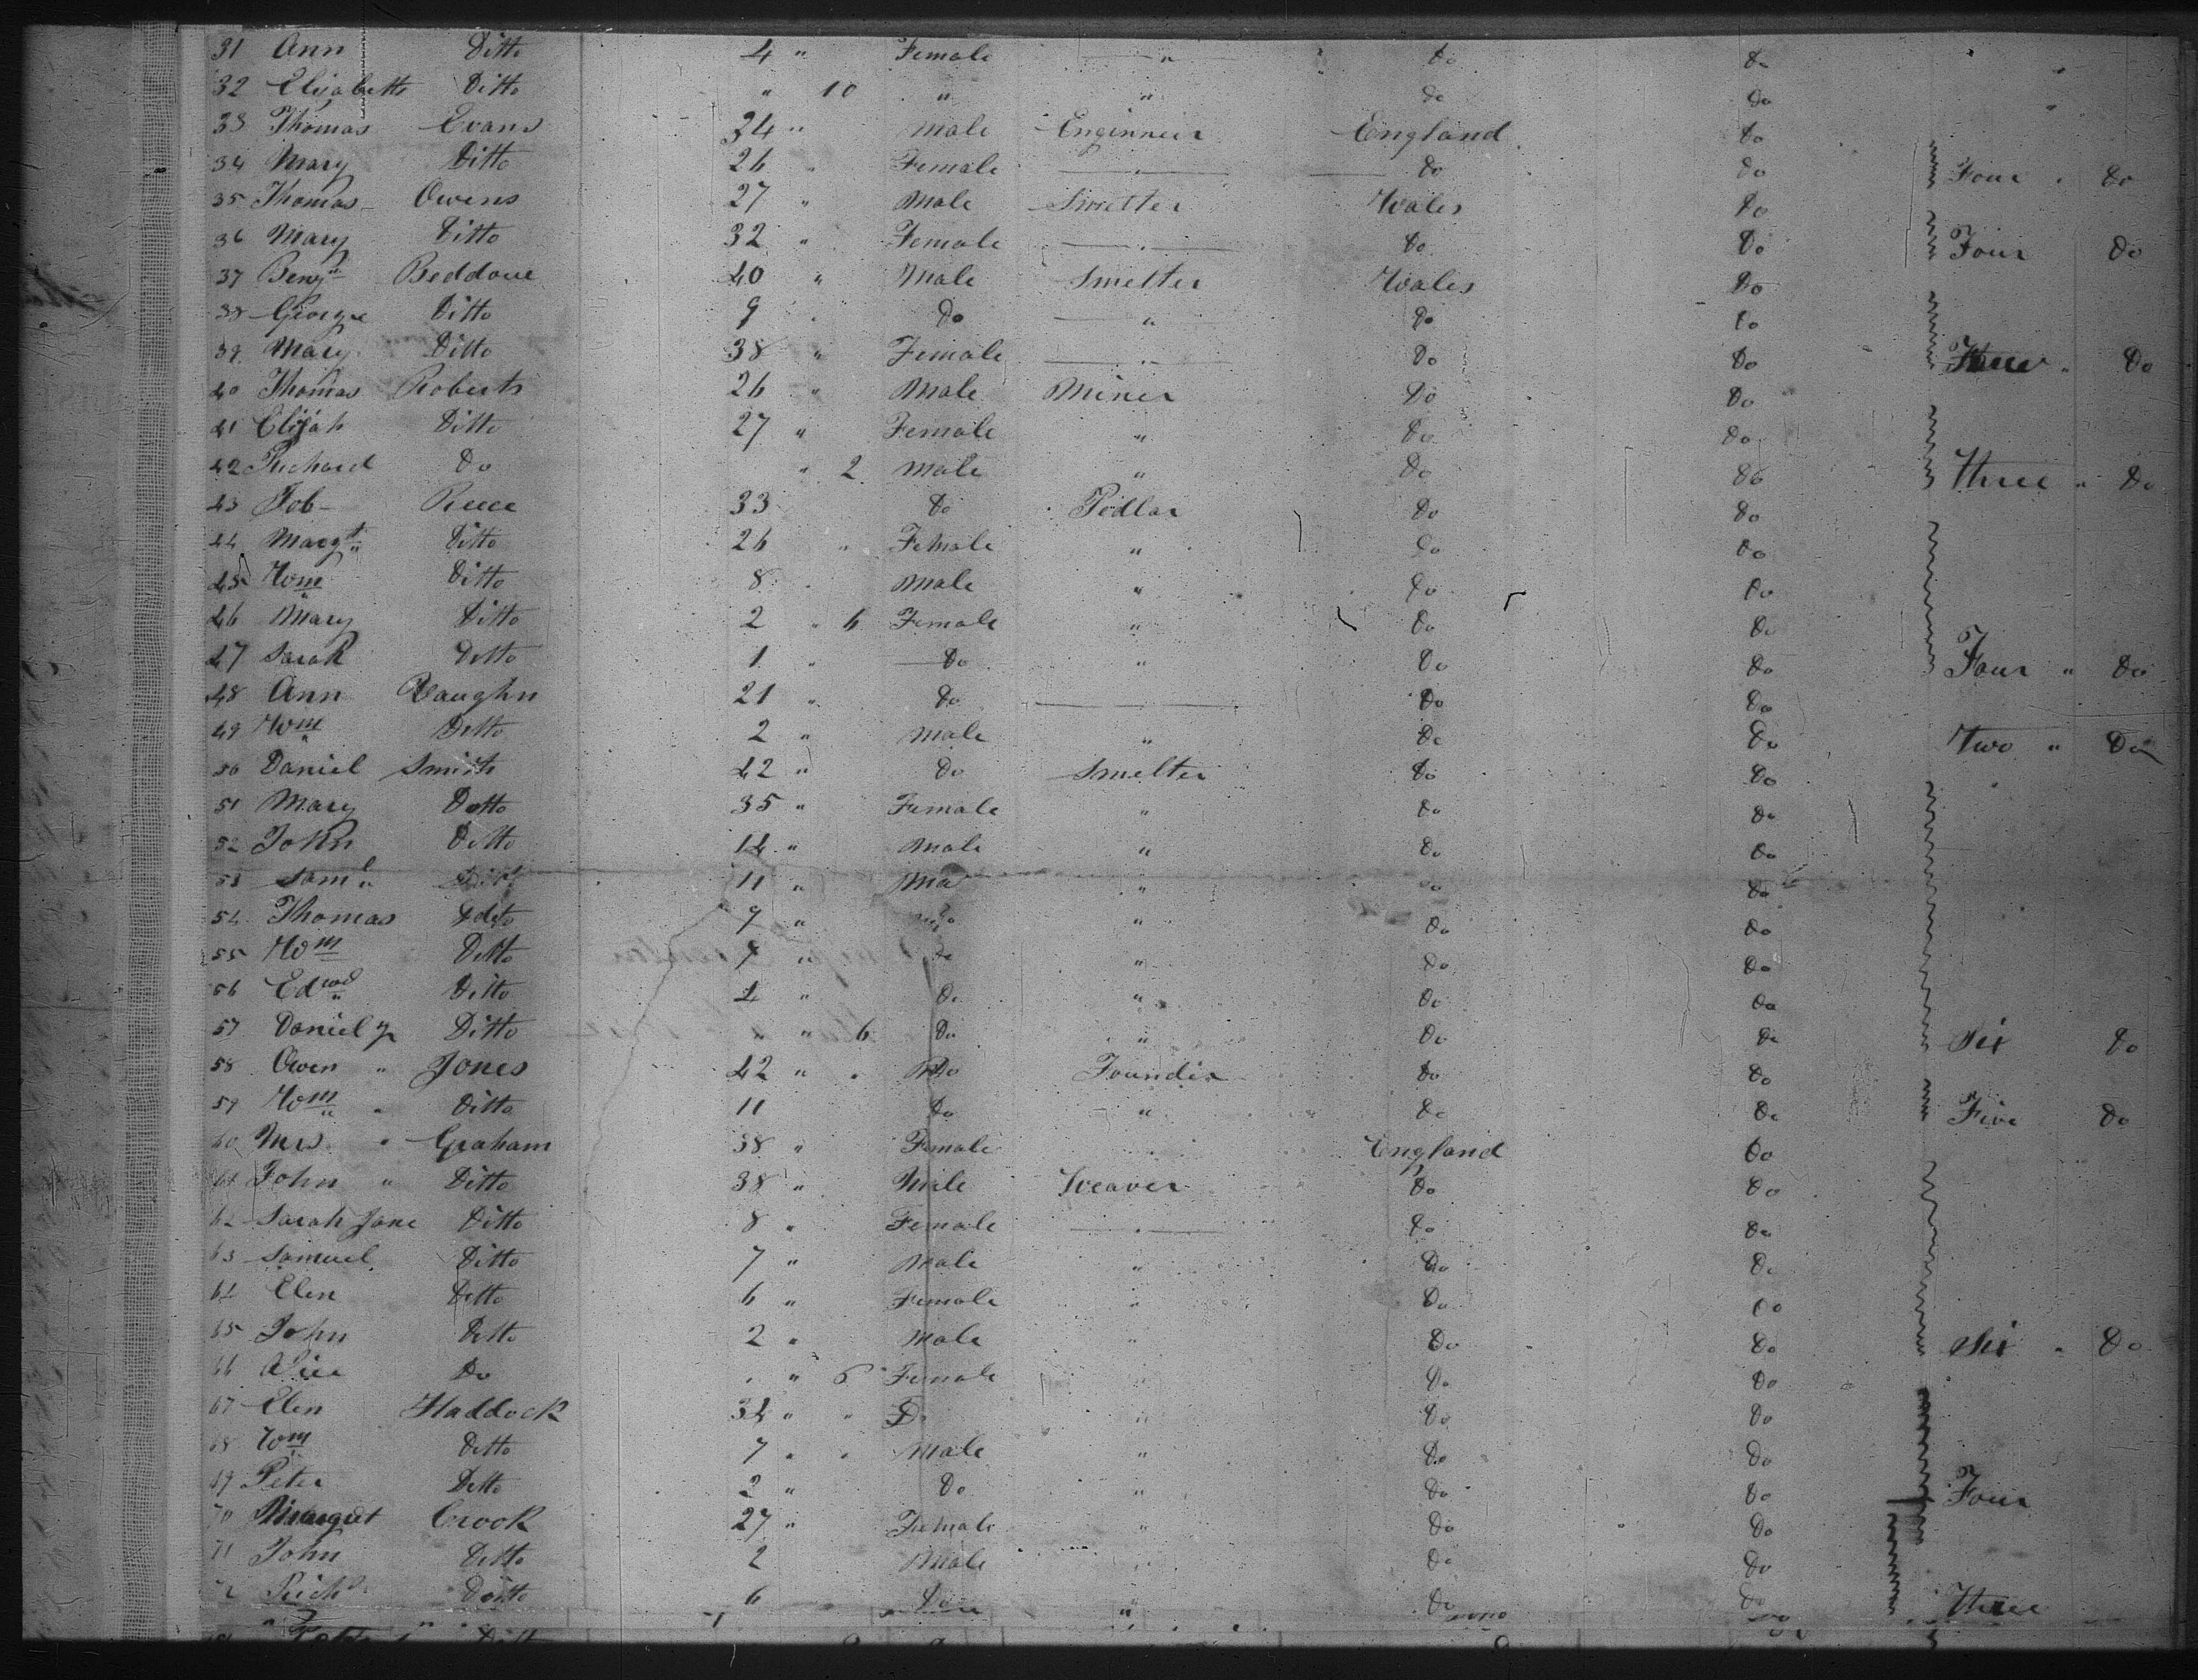 31 Ann Ditto 4 " Female " Do Do "
32 Elizabeth Ditto " 10 " " Do Do "
33 Thomas Evans 34 " Male Enginneer England Do
34 Mary Ditto 26 " Female " Do Do Four " Do
35 Thomas Owens 27 " Male Smelter Wales Do
36 Mary Ditto 32 " Female " Do Do Four Do
37 Benjn Beddoue 40 " Male Smelter Wales Do
38 George Ditto 9 " Do " Do Do
39 Mary Ditto 38 " Female " Do Do Three " Do
40 Thomas Roberts 26 " Male Miner Do Do
41 Elijah Ditto 27 " Female " Do Do
42 Richard Do " 2 Male " Do Do Three " Do
43 Job Reece 33 Do Pedlar Do Do
44 Margt Ditto 26 " Female " Do Do
45 Wm Ditto 8 " Male " Do Do
46 Mary Ditto 2 " 6 Female " Do Do
47 Sarah Ditto 1 " Do " Do Do Four " Do
48 Ann Vaughn 21 " Do Do Do
49 Wm Ditto 2 " Male " Do Do Two " Do
50 Daniel Smith 42 " Do Smelter Do Do
51 Mary Ditto 35 " Female " Do Do
52 John Ditto 14 " Male " Do Do
53 Saml Ditto 11 " Ma " Do Do
54 Thomas Ditto 9 " Do " Do Do
55 Wm Ditto 7 " Do " Do Do
56 Edwd Ditto 4 " Do " Do Do
57 Daniel Jr Ditto " " 6 Do " Do Do Six Do
58 Owen " Jones 42 " " Do Founder Do Do
59 Wm " Ditto 11 Do " Do Do Five Do
60 Mrs " Graham 38 " Female England Do
61 John " Ditto 38 " Male Weaver Do Do
62 Sarah Jane Ditto 8 " Female " Do Do
63 Samuel Ditto 7 " Male " Do Do
64 Elen Ditto 6 " Female " Do Do
65 John Ditto 2 " Male " Do Do Six " Do
66 Alice Do " " 6 Female " Do Do
67 Elen Haddock 34 " " Do " Do Do
68 Wm Ditto 7 " " Male " Do Do
69 Peter Ditto 2 " Do " Do Do Four
70 Margret Crook 27 " Female " Do Do
71 John Ditto 2 Male " Do Do
72 Richd Ditto 6 Do " Do Do Three